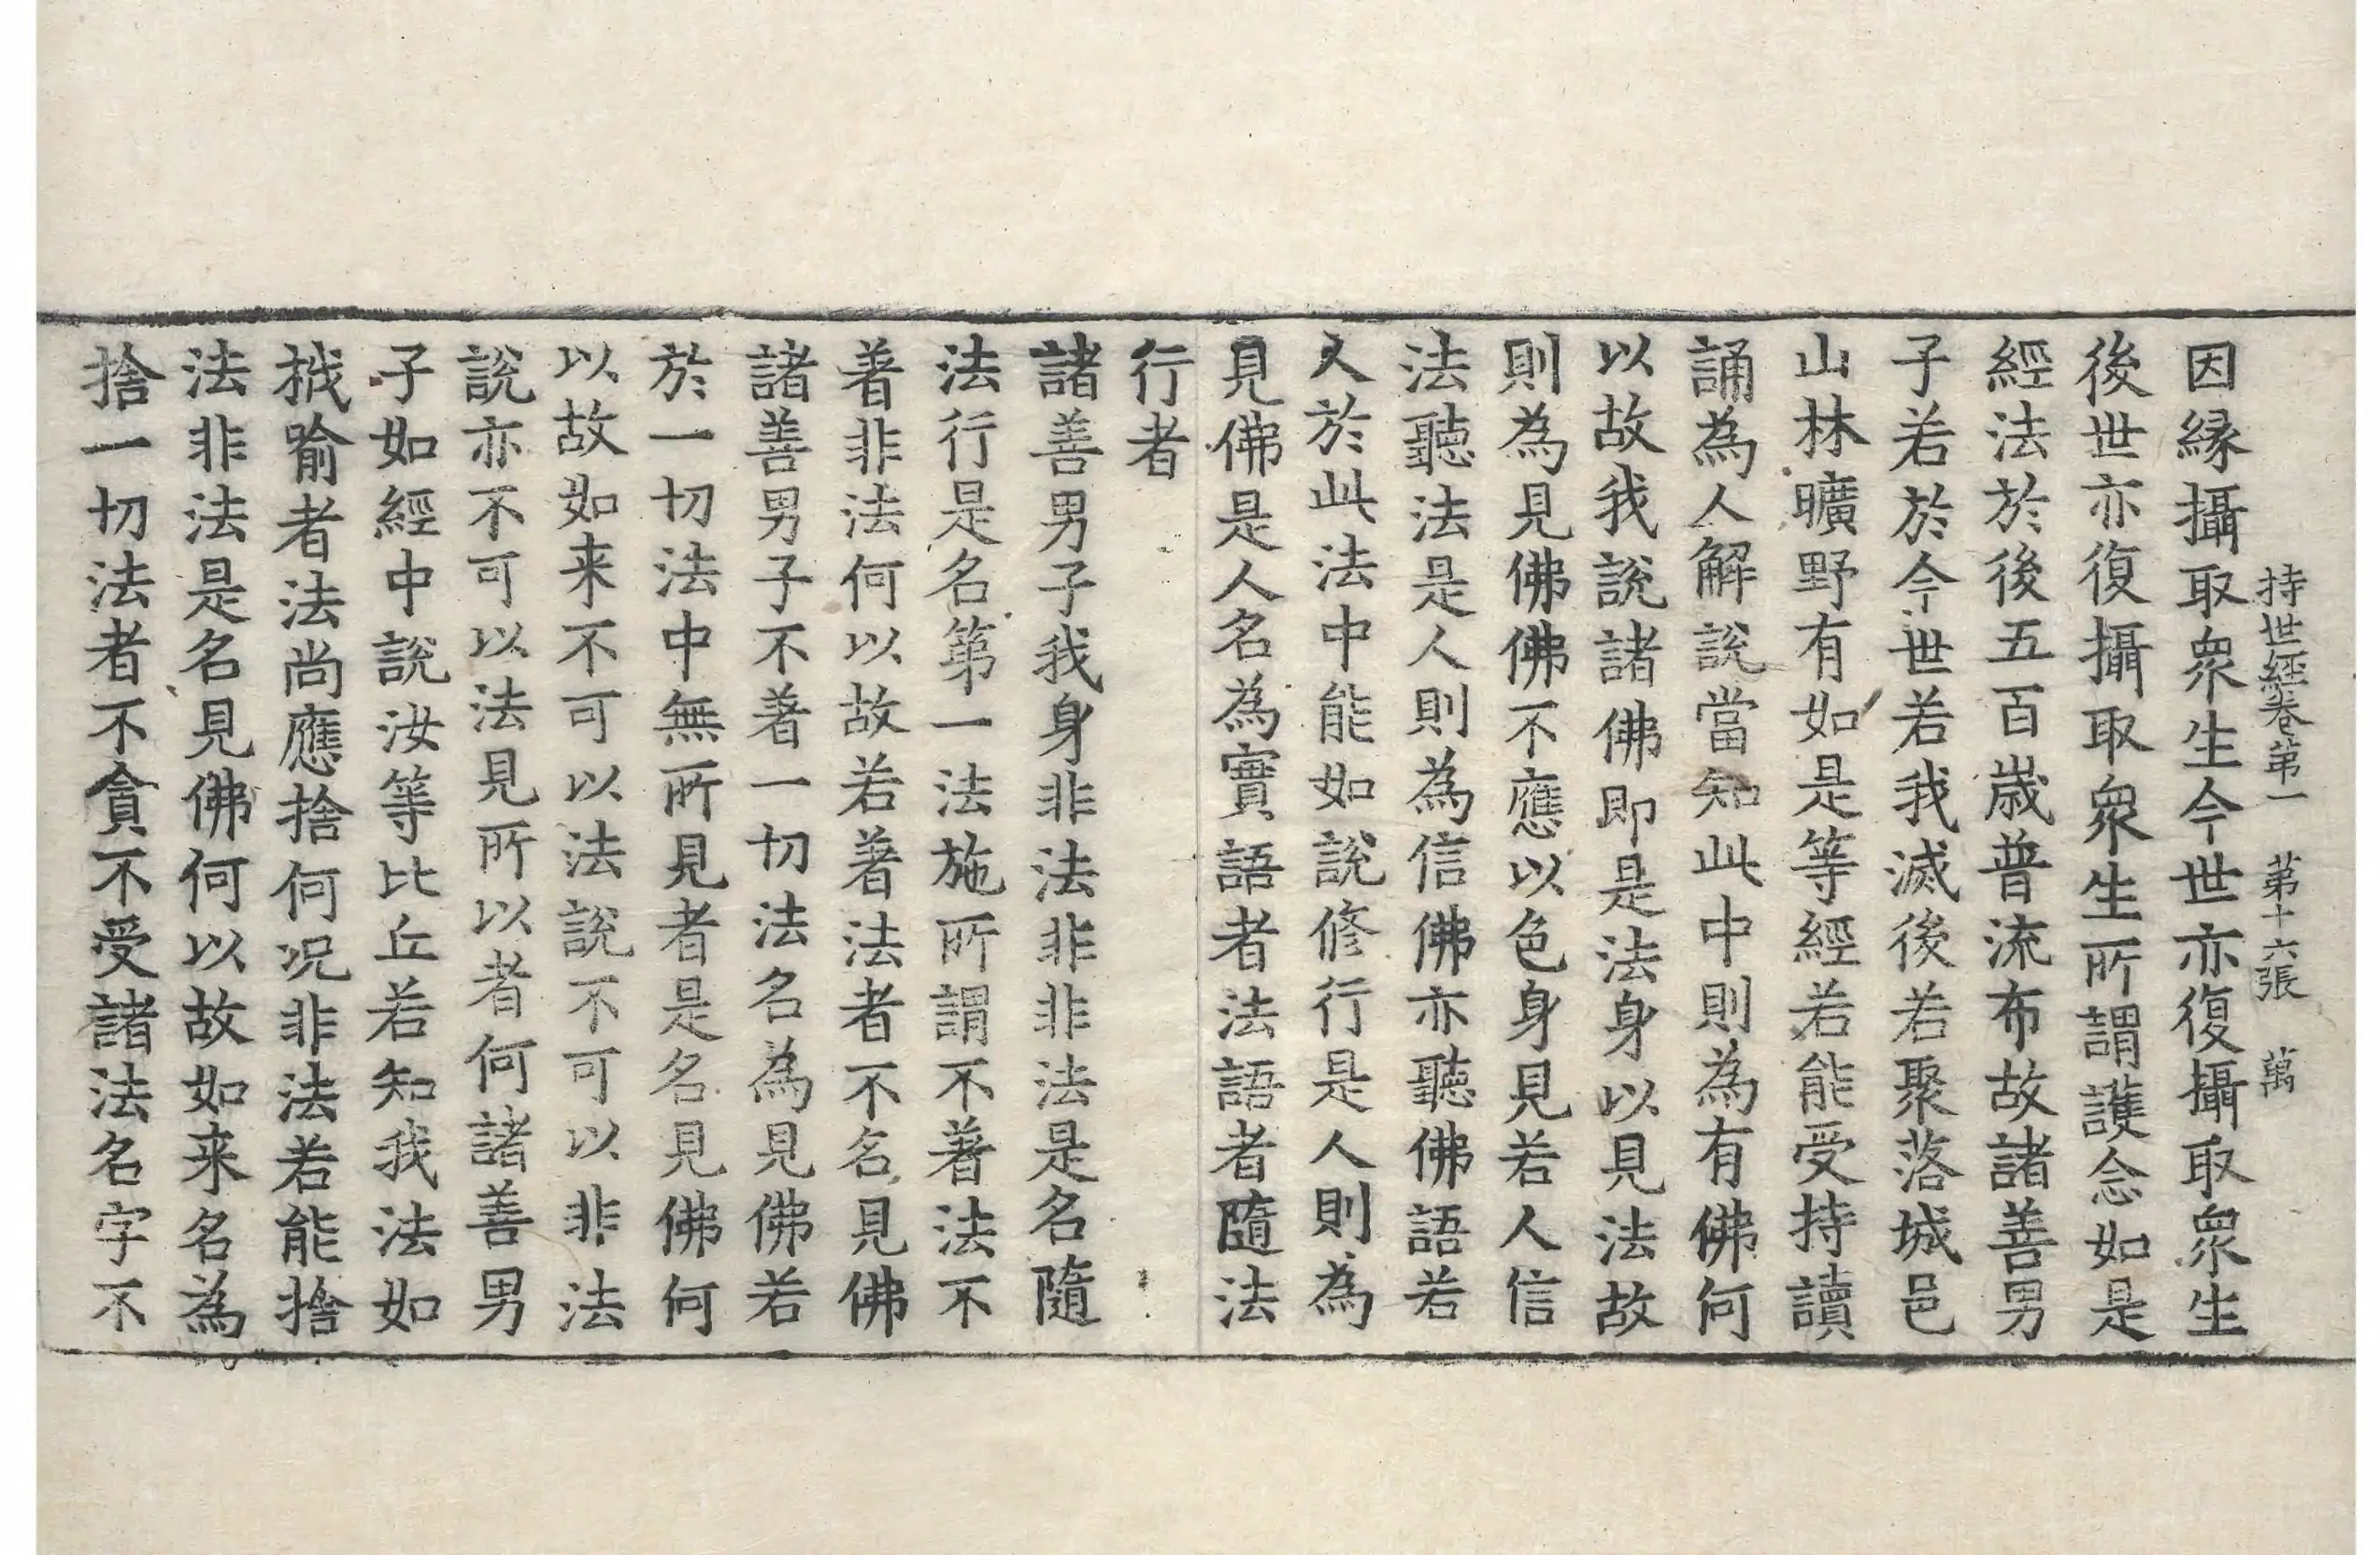 持世經卷第一 第十六張 萬
因緣攝取衆生今世亦復攝取衆生
後世亦復攝取衆生所謂護念如是
經法於後五百歲普流布故諸善男
子若於今世若我滅後若聚落城邑
山林曠野有如是等經若能受持讀
誦為人解說當知此中則為有佛何
以故我說諸佛即是法身以見法故
則為見佛佛不應以色身見若人信
法聽法是人則為信佛亦聽佛語若
人於此法中能如說修行是人則為
見佛是人名為實語者法語者隨法
行者
諸善男子我身非法非非法是名隨
法行是名第一法施所謂不著法不
著非法何以故若著法者不名見佛
諸善男子不著一切法名為見佛若
於一切法中無所見者是名見佛何
以故如来不可以法說不可以非法
說亦不可以法見所以者何諸善男
子如經中說汝等比丘若知我法如
栰喻者法尚應捨何况非法若能捨
法非法是名見佛何以故如来名為
捨一切法者不貪不受諸法名字不